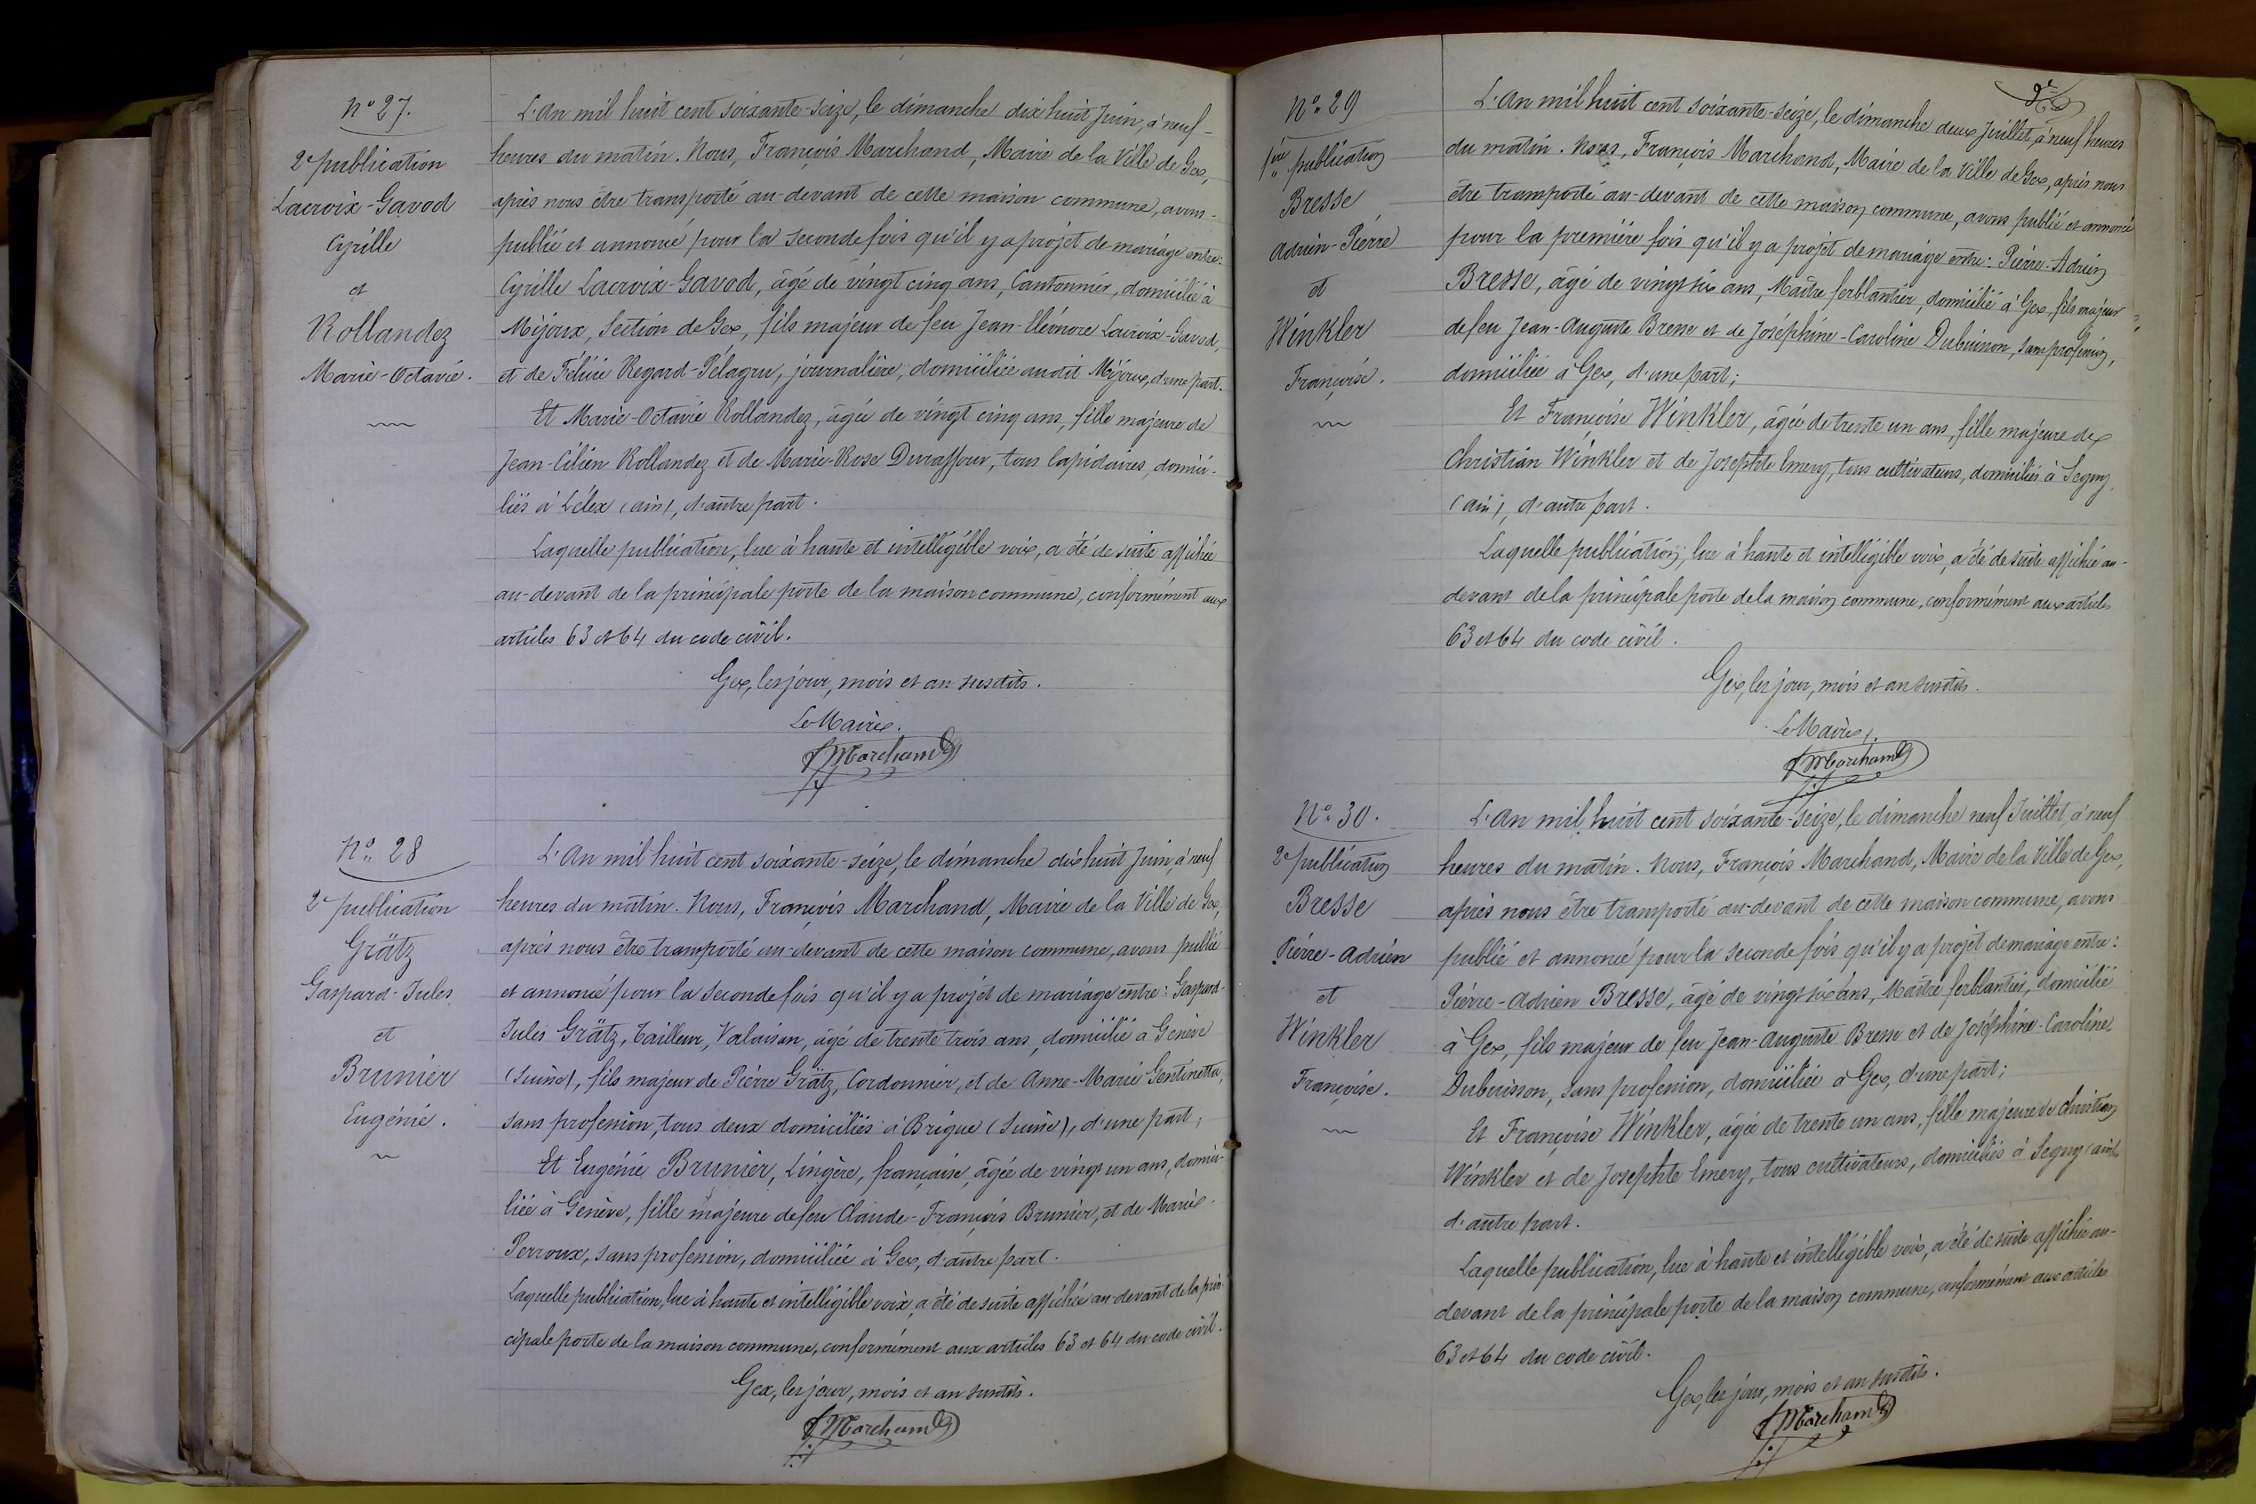 N° 27.
2e publication
Lacroix-Gavod
Cyrille
et
Rollandez
Marie-Octavie.
L'An mil huit cent soixante-seize, le dimanche dix huit Juin, à neuf-
heures du matin. Nous, François Marchand, Maire de la Ville de Gex,
après nous être transporté au-devant de cette maison commune, avons-
publié et annoncé pour la seconde fois qu'il y a projet de mariage entre:
Cyrille Lacroix-Gavod, âgé de vingt cinq ans, Cantonnier, domicilié à
Mijoux, Section de Gex, fils majeur de feu Jean-Eléonore Lacroix-Gavod,
et de Félicie Regard-Pélagru, journalière, domiciliée audit Mijoux, d'une part.
Et Marie-Octavie Rollandez, âgée de vingt cinq ans, fille majeure de
Jean-Cilien Rollandez et de Marie-Rose Duraffour, tous lapidaires, domici-
liés à Lélex (ain), d'autre part.
Laquelle publication, lue à haute et intelligible voix, a été de suite affichée
au-devant de la principale porte de la maison commune, conformément aux
articles 63 et 64 du code civil.
Gex, les jour, mois et an susdits.
Le Maire.
f Marchand
N° 28
2e publication
Grätz
Gaspard-Jules
et
Brunier
Eugénie.
L'An mil huit cent soixante-seize, le dimanche dix huit Juin, à neuf
heures du matin. Nous, François Marchand, Maire de la Ville de Gex,
après nous être transporté au-devant de cette maison commune, avons publié
et annoncé pour la seconde fois qu'il y a projet de mariage entre: Gaspard-
Jules Grätz, Tailleur, Valaisan, âgé de trente trois ans, domicilié à Genève
(Suisse), fils majeur de Pierre Grätz, Cordonnier, et de Anne-Marie Gentinetta,
sans profession, tous deux domiciliés à Brigue (Suisse), d'une part;
Et Eugénie Brunier, Lingère, française, âgée de vingt un ans, domici-
liée à Genève, fille majeure de feu Claude-François Brunier, et de Marie-
Perroux, sans profession, domiciliée à Gex, d'autre part.
Laquelle publication, lue à haute et intelligible voix, a été de suite affichée au-devant de la prin-
cipale porte de la maison commune, conformément aux articles 63 et 64 du code civil.
Gex, les jour, mois et an susdits.
f Marchand
N° 29
1ère publication
Bresse
Adrien-Pierre
et
Winkler
Françoise.
L'An mil huit cent soixante-seize, le dimanche deux Juillet, à neuf heures
du matin. Nous, François Marchand, Maire de la Ville de Gex, après nous
être transporté au-devant de cette maison commune, avons publié et annoncé
pour la première fois qu'il y a projet de mariage entre: Pierre-Adrien
Bresse, âgé de vingt six ans, Maître ferblantier, domicilié à Gex, fils majeur
de feu Jean-Auguste Bresse et de Joséphine-Caroline Dubuisson, sans profession,
domiciliée à Gex, d'une part;
Et Françoise Winkler, âgée de trente un ans, fille majeure de
Christian Winkler et de Josephte Emery, tous cultivateurs, domiciliés à Segny
(ain), d'autre part.
Laquelle publication, lue à haute et intelligible voix, a été de suite affichée au-
devant de la principale porte de la maison commune, conformément aux articles
63 et 64 du code civil.
Gex, les jour, mois et an susdits.
Le Maire,
f Marchand
N° 30.
2e publication
Bresse
Pierre-Adrien
et
Winkler
Françoise.
L'An mil huit cent soixante-seize, le dimanche neuf Juillet, à neuf
heures du matin. Nous, François Marchand, Maire de la Ville de Gex,
après nous être transporté au-devant de cette maison commune, avons
publié et annoncé pour la seconde fois qu'il y a projet de mariage entre:
Pierre-Adrien Bresse, âgé de vingt six ans, Maître ferblantier, domicilié
à Gex, fils majeur de feu Jean-Auguste Bresse et de Joséphine-Caroline
Dubuisson, sans profession, domiciliée à Gex, d'une part;
Et Françoise Winkler, âgée de trente un ans, fille majeure de Christian
Winkler et de Josephte Emery, tous cultivateurs, domiciliés à Segny (ain)
d'autre part.
Laquelle publication, lue à haute et intelligible voix, a été de suite affichée au-
devant de la principale porte de la maison commune, conformément aux articles
63 et 64 du code civil.
Gex, les jour, mois et an susdits.
f Marchand